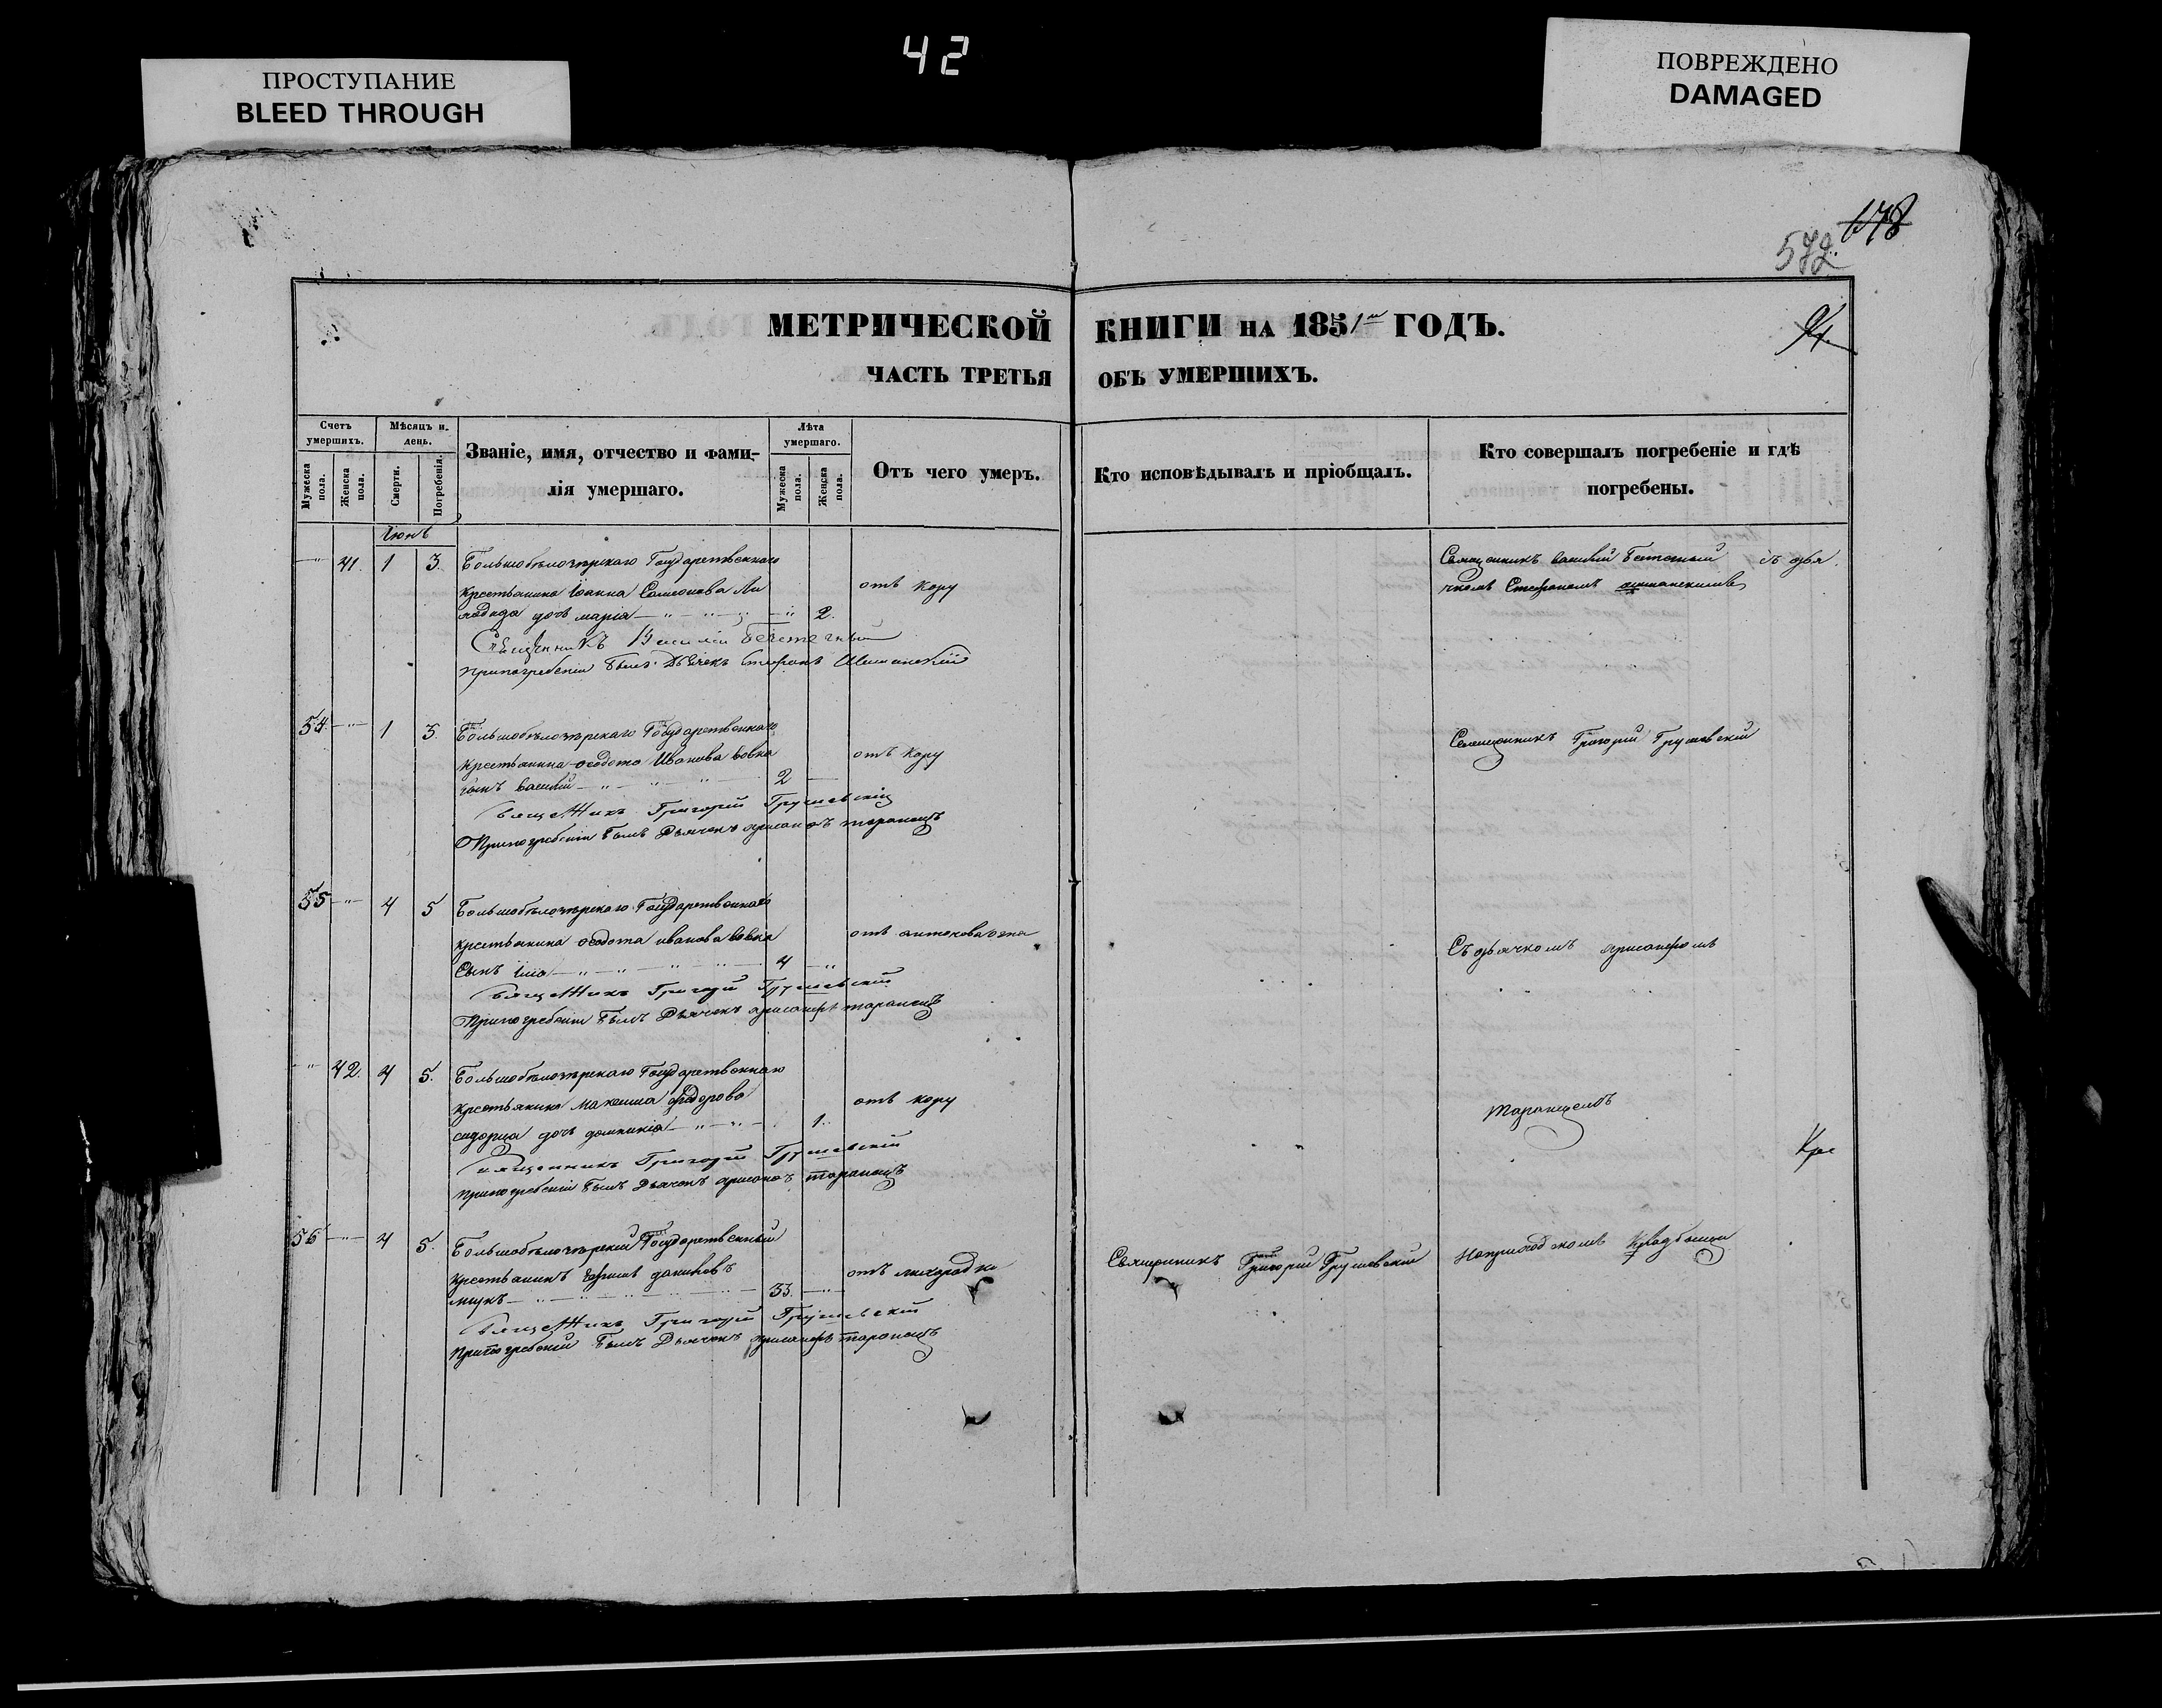 42
ПРОСТУПАНИЕ
BLEED THROUGH
ПОВРЕЖДЕНО
DAMAGED
178
572
МЕТРИЧЕСКОЙ КНИГИ НА 1851 ГОДЪ.
94.
ЧАСТЬ ТРЕТЬЯ ОБЪ УМЕРШИХЪ.
Счетъ умершихъ.
Мужеска пола.
Женска пола.
Мѣсяцъ и день.
Смерти.
Погребенія.
Званіе, имя, отчество и фами-
лія умершаго.
Лѣта умершаго.
Мужеска пола.
Женска пола.
Отъ чего умеръ.
Кто исповѣдывалъ и пріобщалъ.
Кто совершалъ погребеніе и гдѣ
погребены.
Іюнь
41. 1 3. Большобѣлозѣрскаго Государственнаго
Священникъ Василий съ дья
крестьянина Іоанна отъ кору
чкомъ Стефаномъ
дочь марія 2.
Священникъ Василій
при погребеніи былъ Дьячекъ Стефанъ
54. 1 3. Большобѣлозѣрскаго Государственнаго
Священникъ Григорій Грушевскій
крестьянина Ѳеодота Иванова Вовка отъ кору
сынъ Василий 2
Священникъ Григорій Грушевскій
При погребеніи былъ Дьячекъ таранецъ
55 4 5 Большобѣлозѣрскаго Государственнаго
крестьянина Ѳеодота иванова Вовка отъ антонова огня
Съ дьячкомъ
Сынъ 4
Священникъ Григорій Грушевскій
При погребеніи былъ Дьячекъ таранецъ
42. 4 5. Большобѣлозѣрскаго Государственнаго
крестьянина Максима федорова отъ кору
таранцемъ
дочь домникія 1.
Кре
Священникъ Григорій Грушевскій
при погребеніи былъ Дьячекъ таранецъ
56 4 5. Большобѣлозѣрский Государственный
крестьянинъ отъ лихорадки
Священникъ Григорій Грушевскій
На приходскомъ кладбищи
53.
Священникъ Григорій Грушевскій
При погребеніи былъ Дьячекъ таранецъ